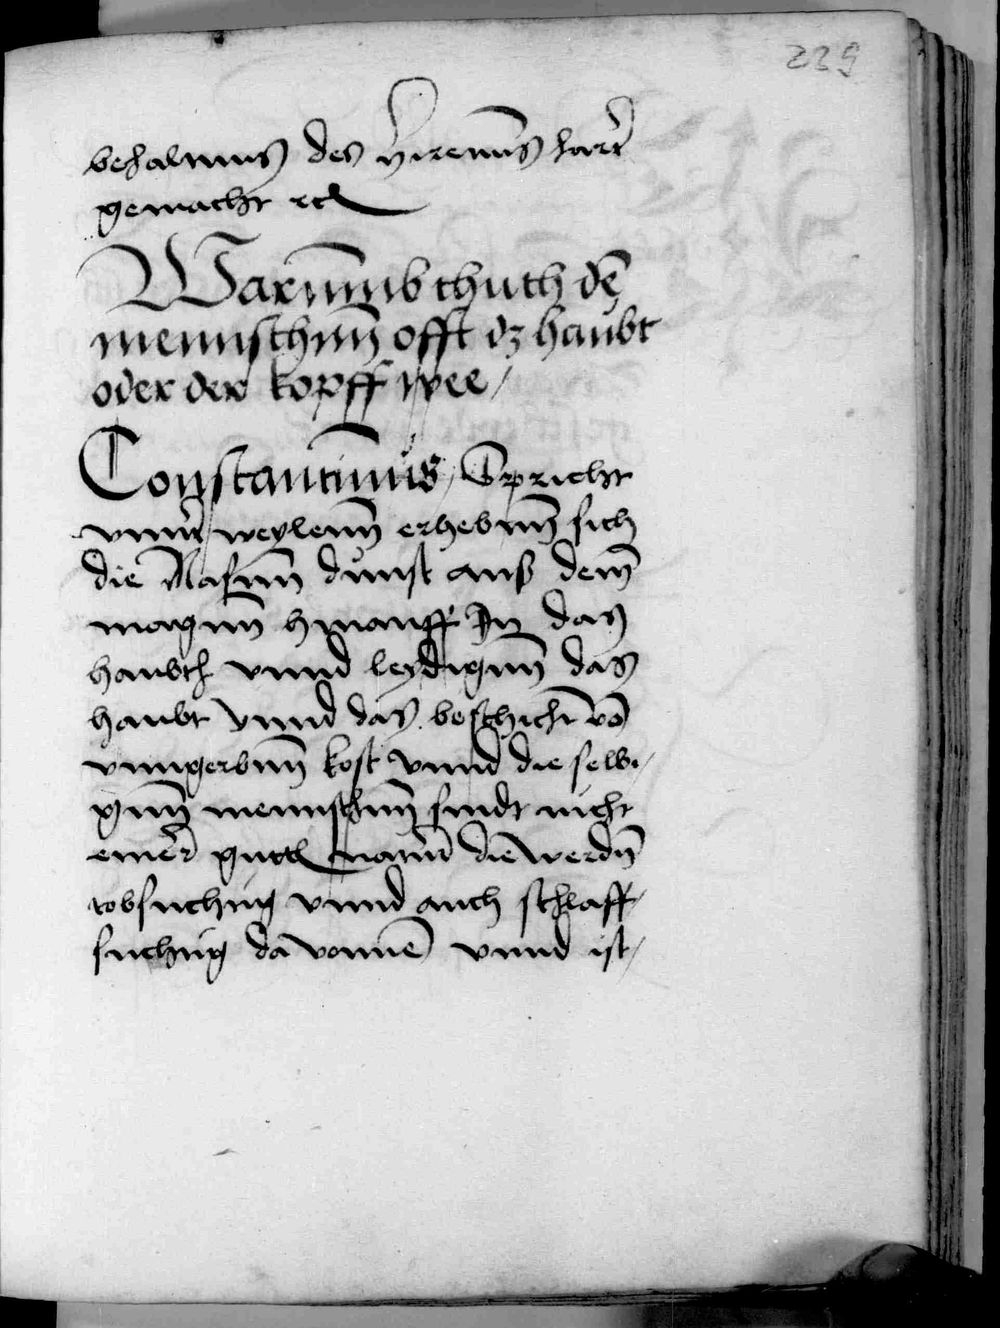 239
behaltnus des hirenns hart
gemacht etc
Warumb thuth dē
mennschnn offt dz haubt
oder der kopff wee /
Constantinus / Spricht
unnd weylenn erhebnn sich
die Nasnn dunst auß dem
magnn hinauff In das
haubth unnd leydignn das
haubt vnnd das beschicht vō
unngerbnn kost vnnd die selbi /
gnn mennschnn sindt nicht
einer guttn natur die werdn
tobsuchtig vnnd auch schlaff /
suchtig da vonne vnnd ist /